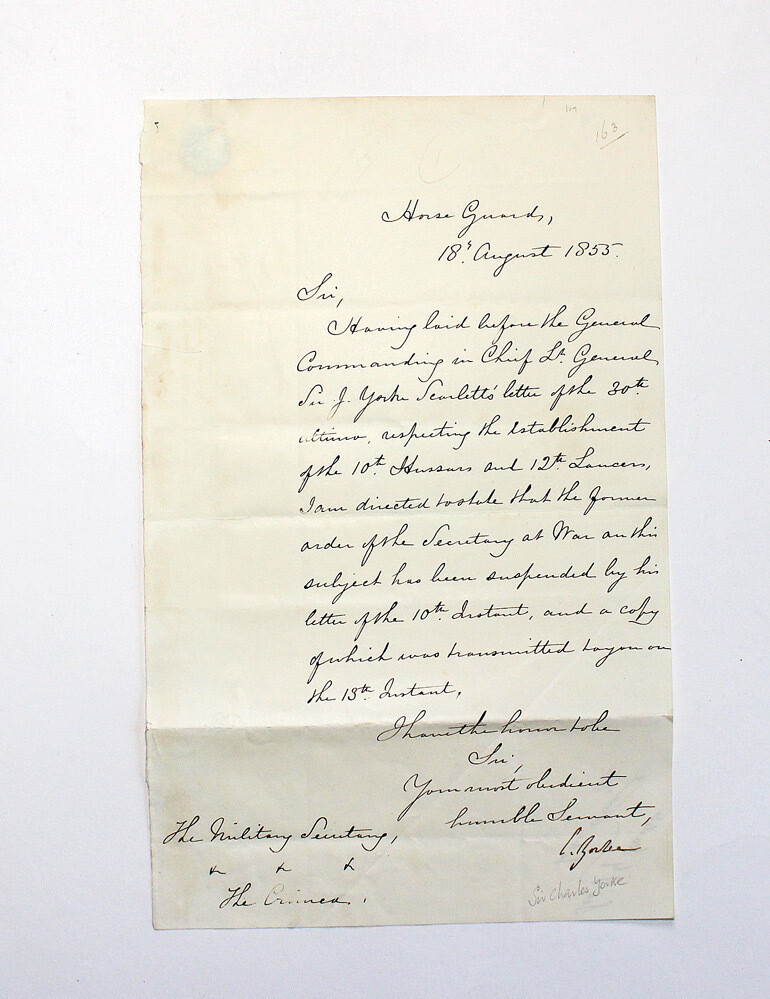 163
Horse Guards,
18th August 1855.
Sir,
Having laid before the General
Commanding in Chief Lt. General
Sir J. Yorke Scarlett's letter of the 30th
ultimo, respecting the Establishment
of the 10th Hussars and 12th Lancers,
I am directed to state that the former
order of the Secretary at War on this
subject has been suspended by his
letter of the 10th Instant, and a copy
of which was transmitted to you on
the 13th Instant.
I have the honor to be
Sir,
Your most obedient
humble Servant,
C. Yorke
The Military Secretary,
& & &
The Crimea.
Sir Charles Yorke